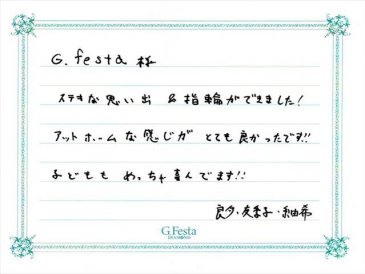 G.festa 様
ステキな思い出 & 指輪ができました!
アットホームな感じが とても良かったです!!
子どもも めっちゃ喜んでます!!
友季子・紬希
G.Festa
DIAMOND